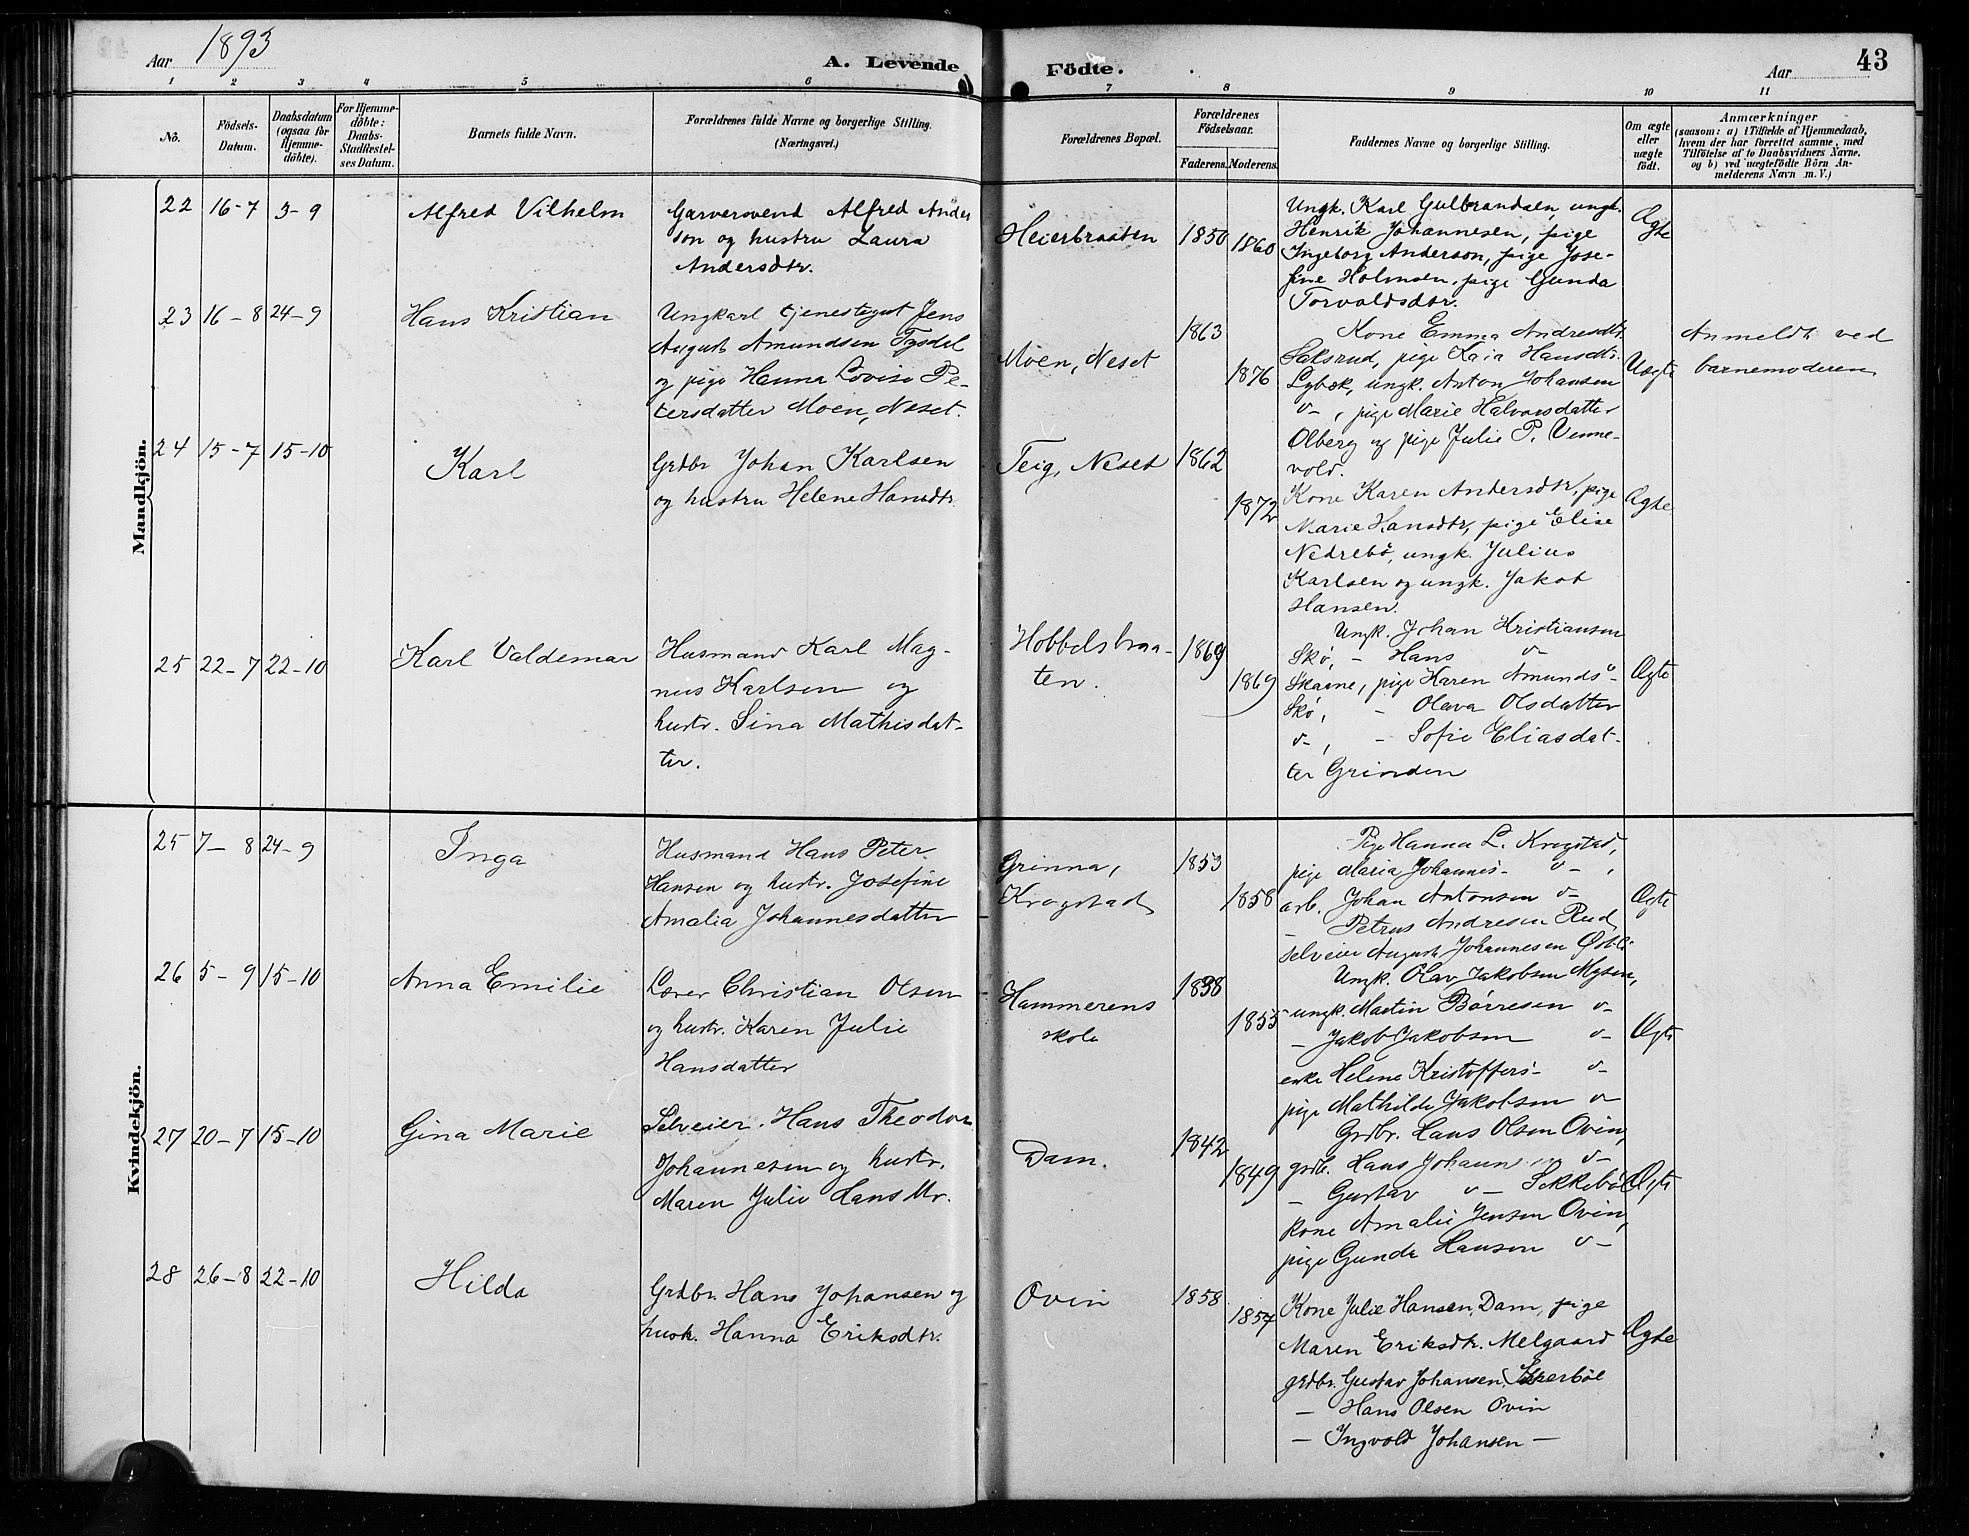 Aar 1893
A. Levende
Födte.
Aar
43
1 2 3 4 5 6 7 8 9 10 11
Nö.
Födsels-
Datum.
Daabsdatum
(ogsaa for
Hjemme-
döbte).
For Hjemme-
döbte:
Daabs-
Stadfæstel-
ses Datum.
Barnets fulde Navn.
Forældrenes fulde Navne og borgerlige Stilling.
(Næringsvei.)
Forældrenes Bopæl.
Forældrenes
Födselsaar.
Faderens. Moderens.
Faddernes Navne og borgerlige Stilling.
Om ægte
eller
uægte
födt.
Anmærkninger
(saasom: a) i Tilfælde af Hjemmedaab,
hvem der har forrettet samme, med
Tilföielse af to Daabsvidners Navne,
og b) ved uægtefödte Börn An-
melderens Navn m. V.)
Mandkjön.
22 16-7 3-9
Alfred Vilhelm
Garversvend Alfred Ander
son og hustru Laura
Andersdtr.
Heierbraaten
1850
1860
Ungk. Karl Gulbrandsen, ungk.
Henrik Johannesen, pige
Ingeborg Anderson, pige Jose-
fine Holmsen, pige Gunda
Torvaldsdtr.
Ægte
23 16-8 24-9
Hans Kristian
Ungkarl tjenestegut Jens
August Amundsen Tysdal
og pige Hanna Lovise Pe-
tersdatter Moen, Neset.
Moen, Neset
1863
1876
Kone Emma Andresdtr.
Saksrud, pige Kaia Hansdtr.
Lybæk, ungk. Anton Johansen
v-, pige Marie Halvorsdatter
Olberg og pige Julie P. Venne-
vold.
Uægte
Anmeldt ved
barnemoderen
24 15-7 15-10
Karl
Grdbr Johan Karlsen
og hustru Helene Hansdtr.
Teig, Neset
1862
1872
Kone Karen Andersdtr, pige
Marie Hansdtr, pige Elise
Nedrebö, ungk. Julius
Karlsen og ungk. Jakob
Hansen.
Ægte
25 22-7 22-10
Karl Valdemar
Husmand Karl Mag-
nus Karlsen og
hustr. Sina Mathisdat-
ter.
Hobbelsbraa-
ten.
1869
1869
Ungk. Johan Kristiansen
Skø, - Hans v-
Skaane, pige Karen Amunds-
Skø, - Olava Olsdatter
v-, - Sofie Eliasdat-
ter Grinden
Ægte
Kvindekjön.
25 7-8 24-9
Inga
Husmand Hans Peter
Hansen og hustr. Josefine
Amalia Johannesdatter
Grinna,
Krogstad
1853
1858
Pige Hanna L. Krogstad,
pige Maria Johannes- v-,
arb. Johan Antonsen v-
- Petrus Andresen Rud
selveier August Johannesen
Ægte
26 5-9 15-10
Anna Emilie
Lærer Christian Olsen
og hustr. Karen Julie
Hansdatter
Hammerens
skole
1838
1855
Ungk. Olav Jakobsen Mysen,
ungk. Martin Børresen v-
- Jakob Jakobsen v-
enke Helene Kristoffers- v-
pige Mathilde Jakobsen v
Ægte
27 20-7 15-10
Gina Marie
Selveier. Hans Theodor
Johannesen og hustr.
Maren Julie Hansdtr.
Dam.
1842
1849
Grdbr. Hans Olsen Ovin,
grdb. Hans v-
- Gustav v-
kone Amalie Jensen Ovin,
pige Gunda Hansen v-
Ægte
28 26-8 22-10
Hilda
Grdbr. Hans Johansen og
hustr. Hanna Eriksdtr.
Ovin
1858
1857
Kone Julie Hansen, Dam, pige
Maren Eriksdtr. Melgaard
grdbr. Gustav Johansen,
- Hans Olsen Ovin
- Ingvold Johansen -
Ægte